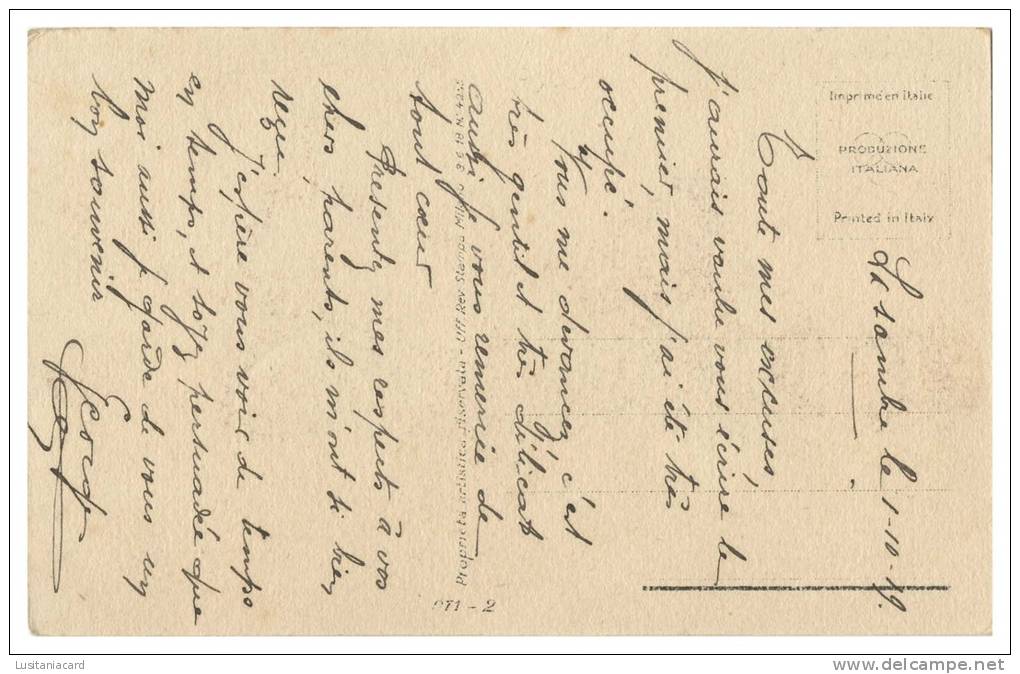 le 1-10-19.
Toute mes excuses,
j'aurais voulu vous écrire le
premier, mais j'ai été très
occupé.
Vous me devancez c'est
très gentil et très délicat
aussi je vous remercie de
tout cœur
Presentez mes respects à vos
chers parents, ils m'ont si bien
reçu.
J'espère vous voir de temps
en temps, et soyez persuadée que
moi aussi je garde de vous un
bon souvenir
Imprimé en Italie
PRODUZIONE
ITALIANA
Printed in Italy
Proprietà artistica riservata
071 - 2
Lusitaniacard
www.delcampe.net